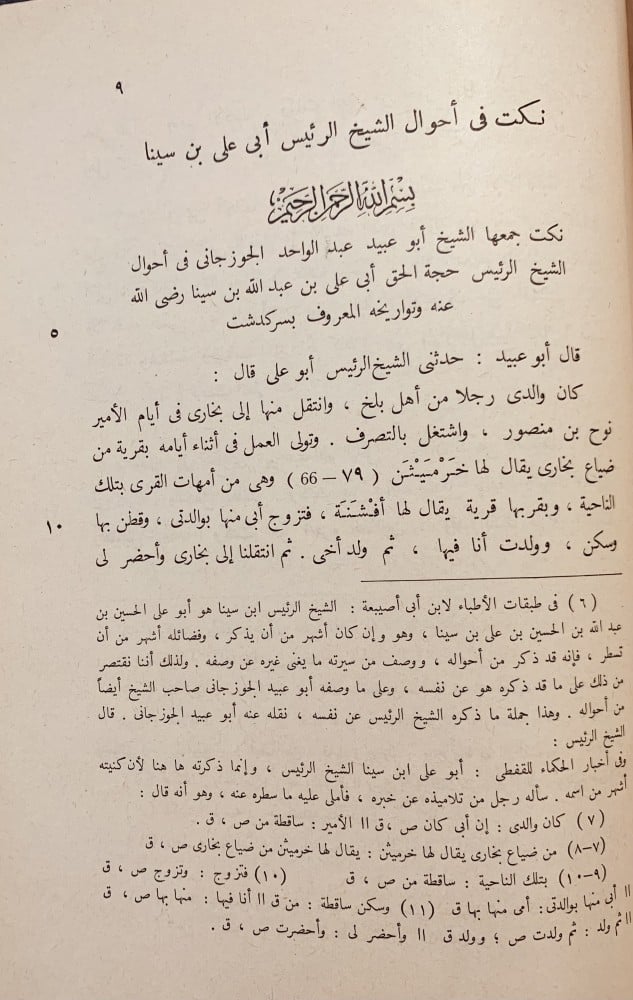 ٩
نكت فى أحوال الشيخ الرئيس أبى على بن سينا
بسم الله الرحمن الرحيم
نكت جمعها الشيخ أبو عبيد عبد الواحد الجوزجانى فى أحوال
الشيخ الرئيس حجة الحق أبى على بن عبد الله بن سينا رضى الله
عنه وتواريخه المعروف بسركدشت
٥
قال أبو عبيد : حدثنى الشيخ الرئيس أبو على قال :
كان والدى رجلا من أهل بلخ ، وانتقل منها إلى بخارى فى أيام الأمير
نوح بن منصور ، واشتغل بالتصرف . وتولى العمل فى أثناء أيامه بقرية من
ضياع بخارى يقال لها خَرْمَيْثَن ( ٧٩ – 66 ) وهى من أمهات القرى بتلك
الناحية ، وبقربها قرية يقال لها أَفْشَنَة ، فتزوج أبى منها بوالدتى ، وقطن بها
١٠
وسكن ، وولدت أنا فيها ، ثم ولد أخى . ثم انتقلنا إلى بخارى وأحضر لى
(٦) فى طبقات الأطباء لابن أبى أصيبعة : الشيخ الرئيس ابن سينا هو أبو على الحسين بن
عبد الله بن الحسين بن على بن سينا ، وهو وإن كان أشهر من أن يذكر ، وفضائله أشهر من أن
تسطر ، فإنه قد ذكر من أحواله ، ووصف من سيرته ما يغنى غيره عن وصفه . ولذلك أننا نقتصر
من ذلك على ما قد ذكره هو عن نفسه ، وعلى ما وصفه أبو عبيد الجوزجانى صاحب الشيخ أيضاً
من أحواله . وهذا جملة ما ذكره الشيخ الرئيس عن نفسه ، نقله عنه أبو عبيد الجوزجانى . قال
الشيخ الرئيس :
وفى أخبار الحكماء للقفطى : أبو على ابن سينا الشيخ الرئيس ، وإنما ذكرته ها هنا لأن كنيته
أشهر من اسمه . سأله رجل من تلاميذه عن خبره ، فأملى عليه ما سطره عنه ، وهو أنه قال :
(٧) كان والدى : إن أبى كان ص ، ق || الأمير : ساقطة من ص ، ق .
(٧–٨) من ضياع بخارى يقال لها خرميثن : يقال لها خرميثن من ضياع بخارى ص ، ق
(٩–١٠) بتلك الناحية : ساقطة من ص ، ق (١٠) فتزوج : وتزوج ص ، ق
|| أبى منها بوالدتى : أمى منها بها ق (١١) وسكن ساقطة : من ق || أنا فيها : منها بها ص ، ق
|| ثم ولد : ثم ولدت ص ؛ وولد ق || وأحضر لى : وأحضرت ص ، ق .